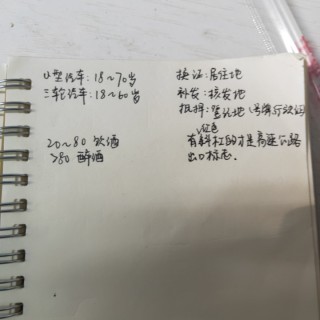 小型汽车:18~70岁
三轮汽车:18~60岁
20~80 饮酒
>80 醉酒
换证:居住地
补发:核发地
抵押:登记地
红色
有斜杠的才是高速公路
出口标志.